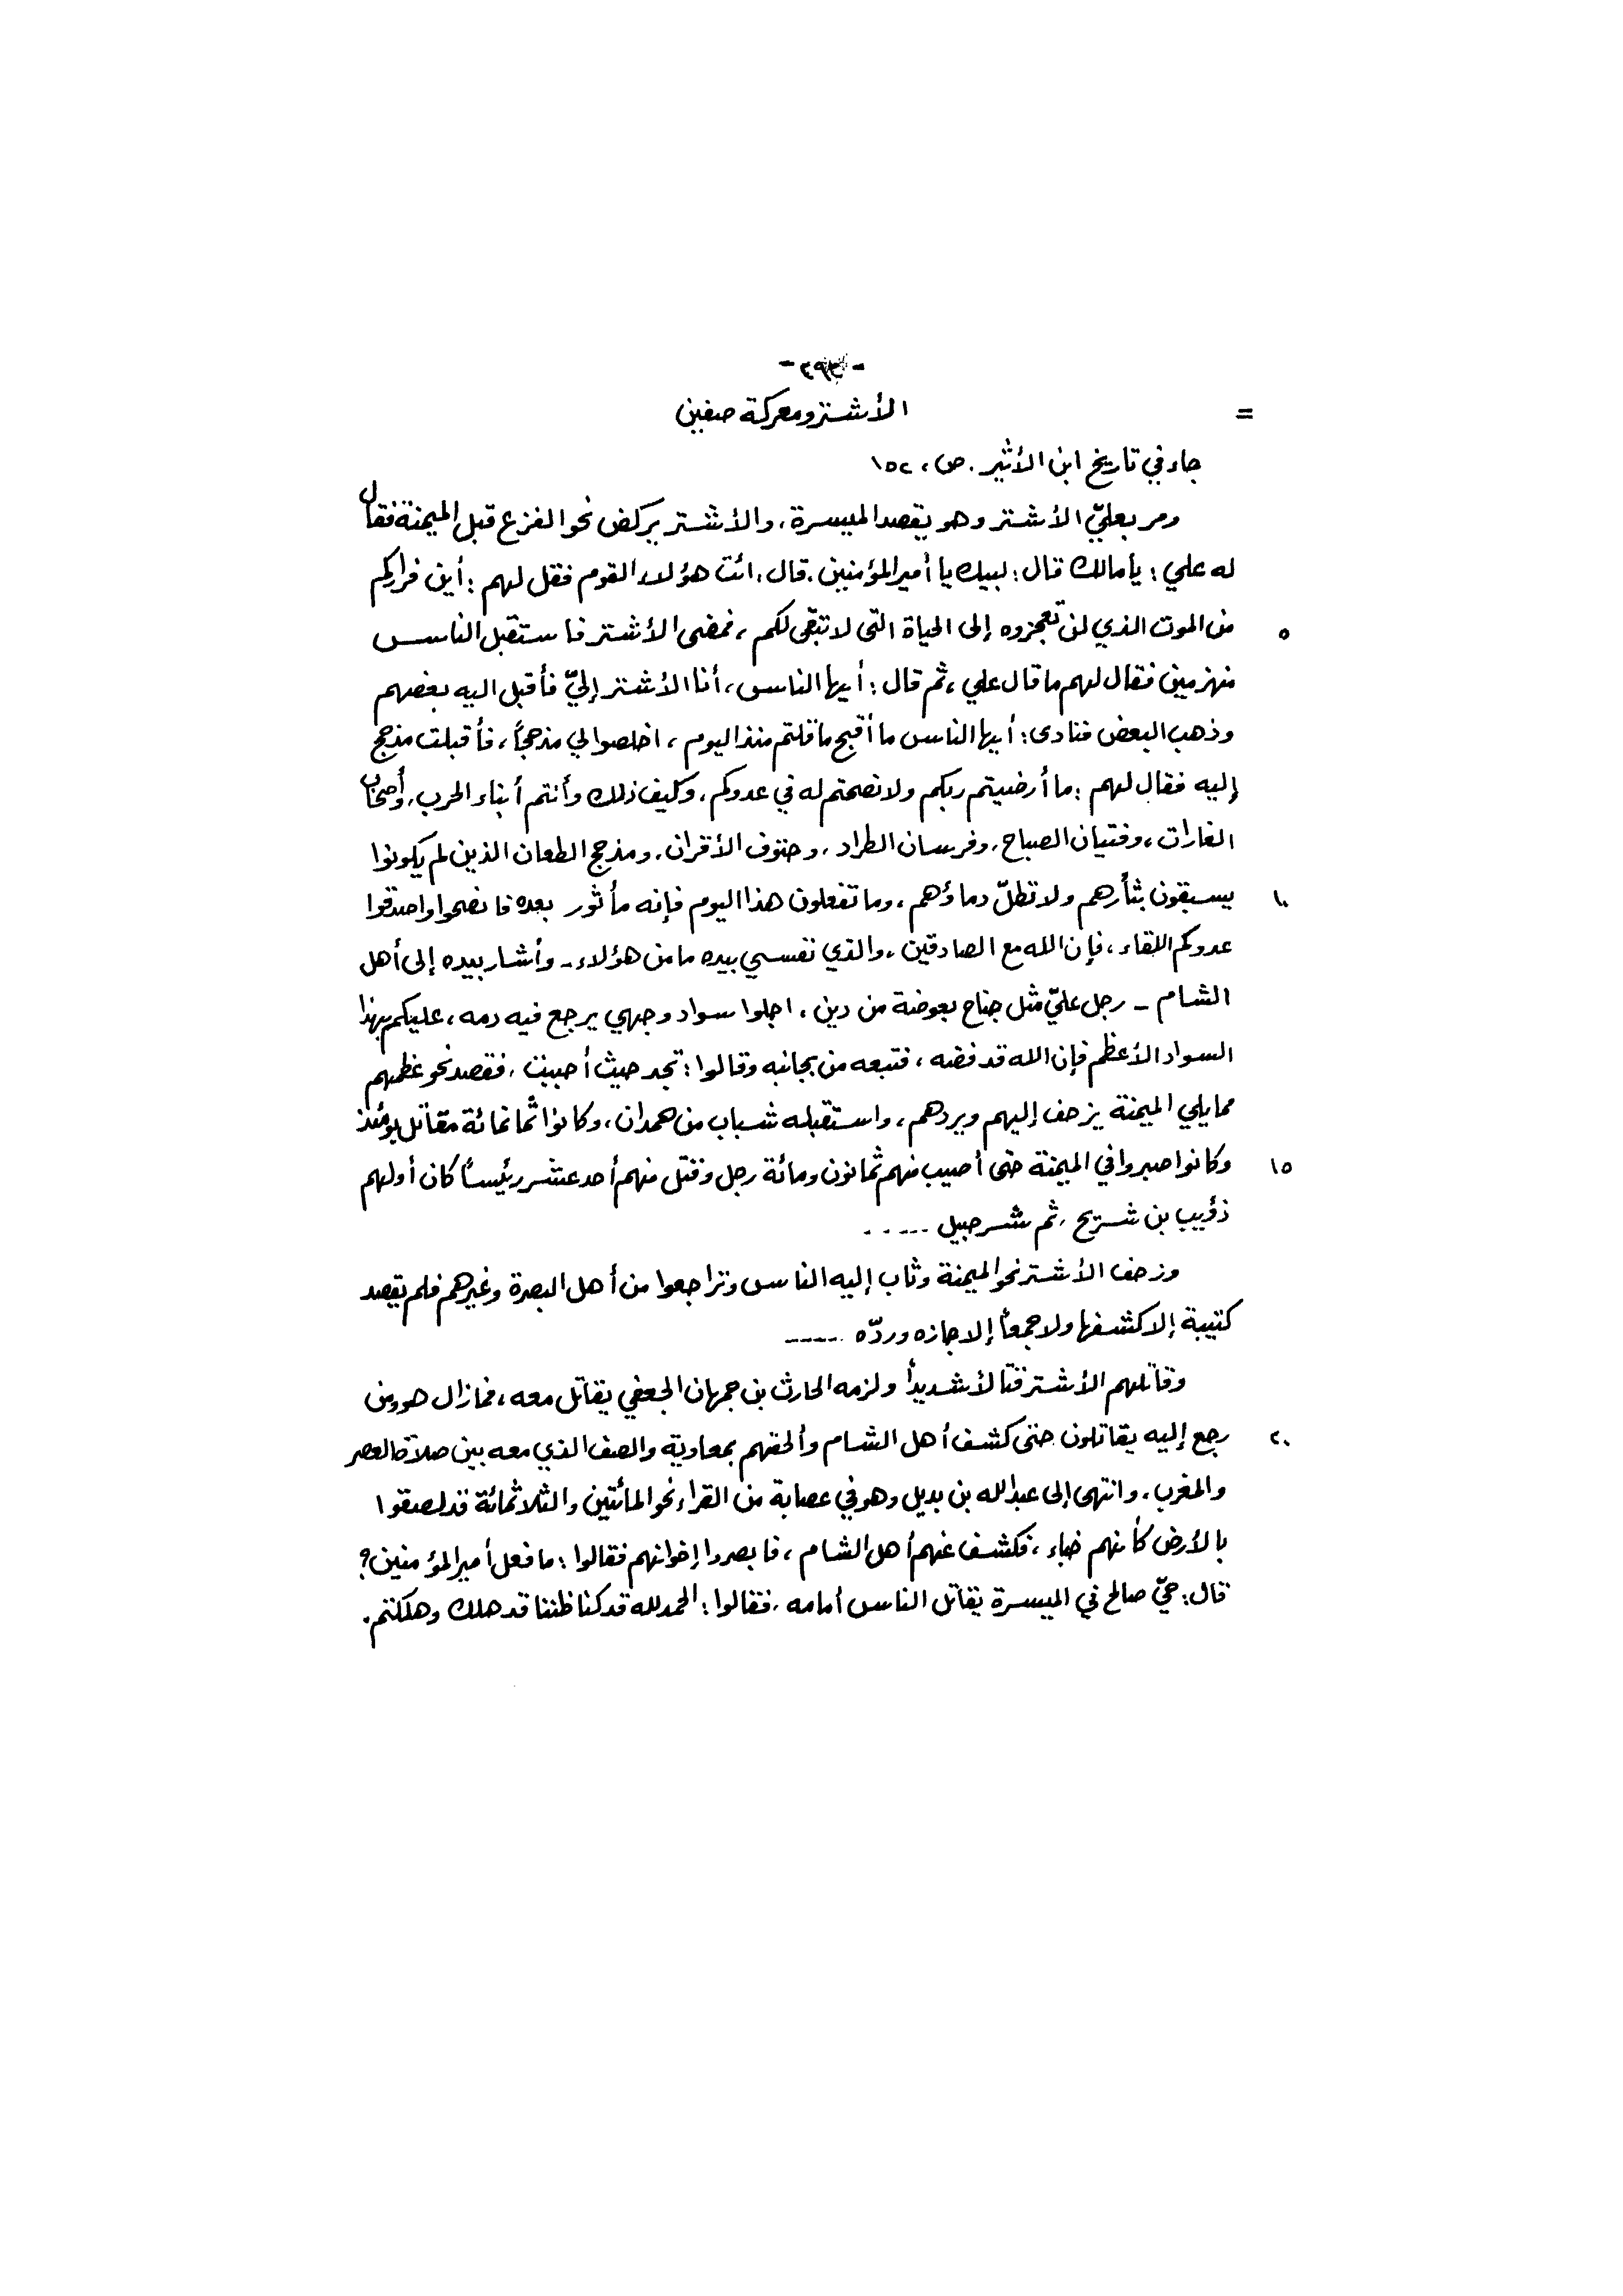 - ٢٩٣ -
= الأشتر ومعركة صفين
جاء في تاريخ ابن الأثير . ص، ١٥٢
ومر بعليّ الأشتر وهو يقصد الميسرة، والأشتر يركض نحو الفزع قبل الميمنة فقال
له علي : يا مالك قال : لبيك يا أمير المؤمنين . قال ، ائت هؤلاء القوم فقل لهم : أين فراركم
٥ من الموت الذي لن تعجزوه إلى الحياة التي لا تبقى لكم ، فمضى الأشتر فاستقبل الناس
منهزمين فقال لهم ما قال علي ، ثم قال : أيها الناس ، أنا الأشتر إليّ فأقبل اليه بعضهم
وذهب البعض فنادى : أيها الناس ما أقبح ما قلتم منذ اليوم ، اخلصوا لي مذحجاً ، فأقبلت مذحج
إليه فقال لهم : ما أرضيتم ربكم ولا نصحتم له في عدوكم ، وكيف ذلك وأنتم أبناء الحرب ، وأصحاب
الغارات ، وفتيان الصباح ، وفرسان الطراد ، وحتوف الأقران ، ومذحج الطعان الذين لم يكونوا
١٠ يسبقون بثأرهم ولا تطلّ دماؤهم ، وما تفعلون هذا اليوم فإنه مأثور بعده فانصحوا واصدقوا
عدوكم اللقاء ، فإن الله مع الصادقين ، والذي نفسي بيده ما من هؤلاء - وأشار بيده إلى أهل
الشام - رجل عليّ مثل جناح بعوضة من دين ، اجلوا سواد وجهي يرجع فيه دمه ، عليكم بهذا
السواد الأعظم فإن الله قد فضه ، فتبعه من بجانبه وقالوا : تجد حيث أحببت ، فقصد نحو عظمهم
مما يلي الميمنة يزحف إليهم ويردهم ، واستقبله شباب من همدان ، وكانوا ثمانمائة مقاتل يومئذ
١٥ وكانوا صبروا في الميمنة حتى أصيب منهم ثمانون ومائة رجل وقتل منهم أحد عشر رئيساً كان أولهم
ذؤيب بن شريح ، ثم شرحبيل -----
وزحف الأشتر نحو الميمنة وثاب إليه الناس وتراجعوا من أهل البصرة وغيرهم فلم يقصد
كتيبة إلا كشفها ولا جمعاً إلا جازه وردّه -----
وقاتلهم الأشتر قتالاً شديداً ولزمه الحارث بن جمهان الجعفي يقاتل معه ، فما زال هو ومن
٢٠ رجع إليه يقاتلون حتى كشف أهل الشام وألحقهم بمعاوية والصف الذي معه بين صلاة العصر
والمغرب ، وانتهى إلى عبدالله بن بديل وهو في عصابة من القراء نحو المائتين والثلاثمائة قد لصقوا
بالأرض كأنهم خباء ، فكشف عنهم أهل الشام ، فابصروا إخوانهم فقالوا : ما فعل أمير المؤمنين ؟
قال : حيّ صالح في الميسرة يقاتل الناس أمامه ، فقالوا : الحمد لله قد كنا ظننا قد هلك وهلكتم .